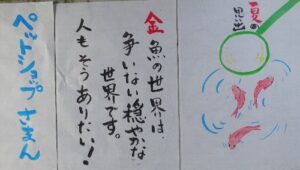 夏の
思出
金魚の世界は、
争いない穏やかな
世界です。
人もそうありたい！
ペットショップさまん